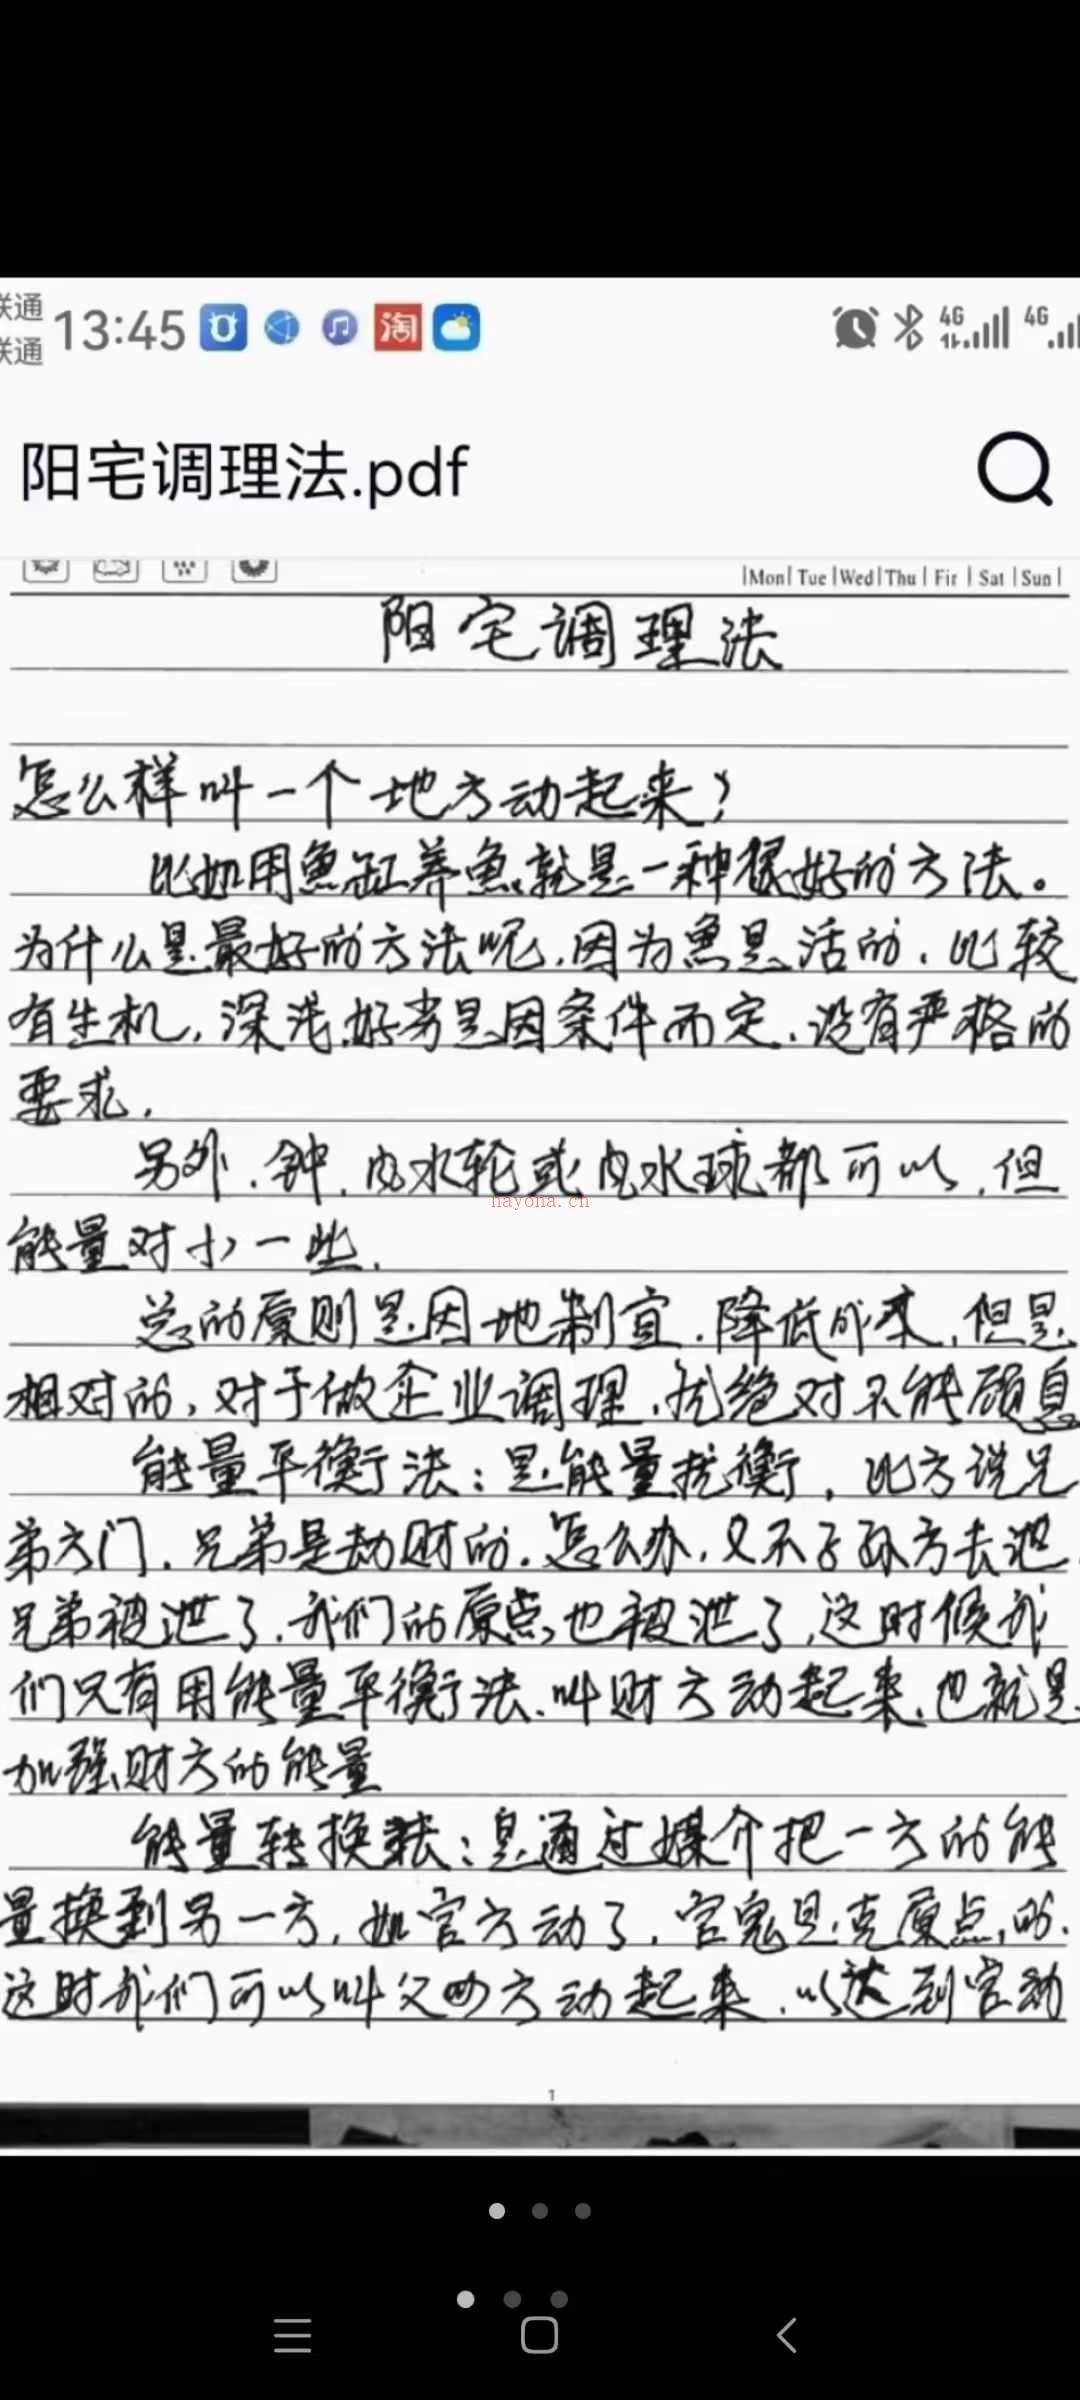 联通
联通
13:45
淘
4G
4G
阳宅调理法.pdf
|Mon| Tue |Wed|Thu | Fir | Sat |Sun|
阳宅调理法
怎么样叫一个地方动起来?
比如用鱼缸养鱼就是一种很好的方法。
为什么是最好的方法呢,因为鱼是活的,比较
有生机,深浅、好劣是因条件而定,没有严格的
要求,
另外,钟,水轮或水球都可以,但
能量对小一些,
nayona.cn
总的原则是因地制宜,降低成本,但是
相对的,对于做企业调理,绝对不能顾惜
能量平衡法:是能量抗衡,比方说兄
弟方门,兄弟是劫财的,怎么办,又不子孙方去泄,
兄弟被泄了,我们的原点也被泄了,这时候我
们只有用能量平衡法,叫财方动起来,也就是
加强财方的能量
能量转换法:是通过媒介把一方的能
量换到另一方,如官方动了,官鬼是克原点的.
这时我们可以叫父母方动起来,以达到官动
1